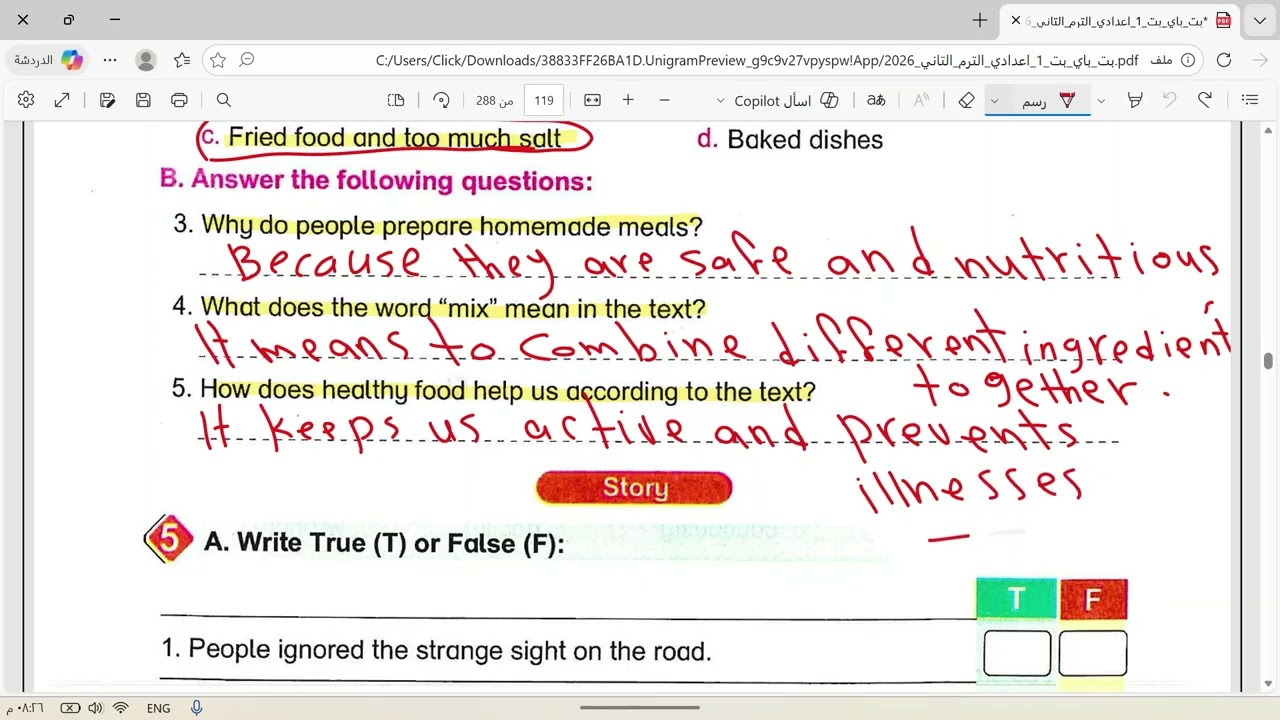 *بت_باي_بت_1_اعدادي_الترم_الثاني_6
الدردشة
C:/Users/Click/Downloads/38833FF26BA1D.UnigramPreview_g9c9v27vpyspw!App/2026_بت_باي_بت_1_اعدادي_الترم_الثاني.pdf
ملف
288 من
119
اسأل Copilot
رسم
c. Fried food and too much salt d. Baked dishes
B. Answer the following questions:
3. Why do people prepare homemade meals?
Because they are safe and nutritious
4. What does the word “mix” mean in the text?
It means to combine different ingredient
together.
5. How does healthy food help us according to the text?
It keeps us active and prevents
illnesses
Story
5 A. Write True (T) or False (F):
T F
1. People ignored the strange sight on the road.
٠٨:٢٦ م
ENG